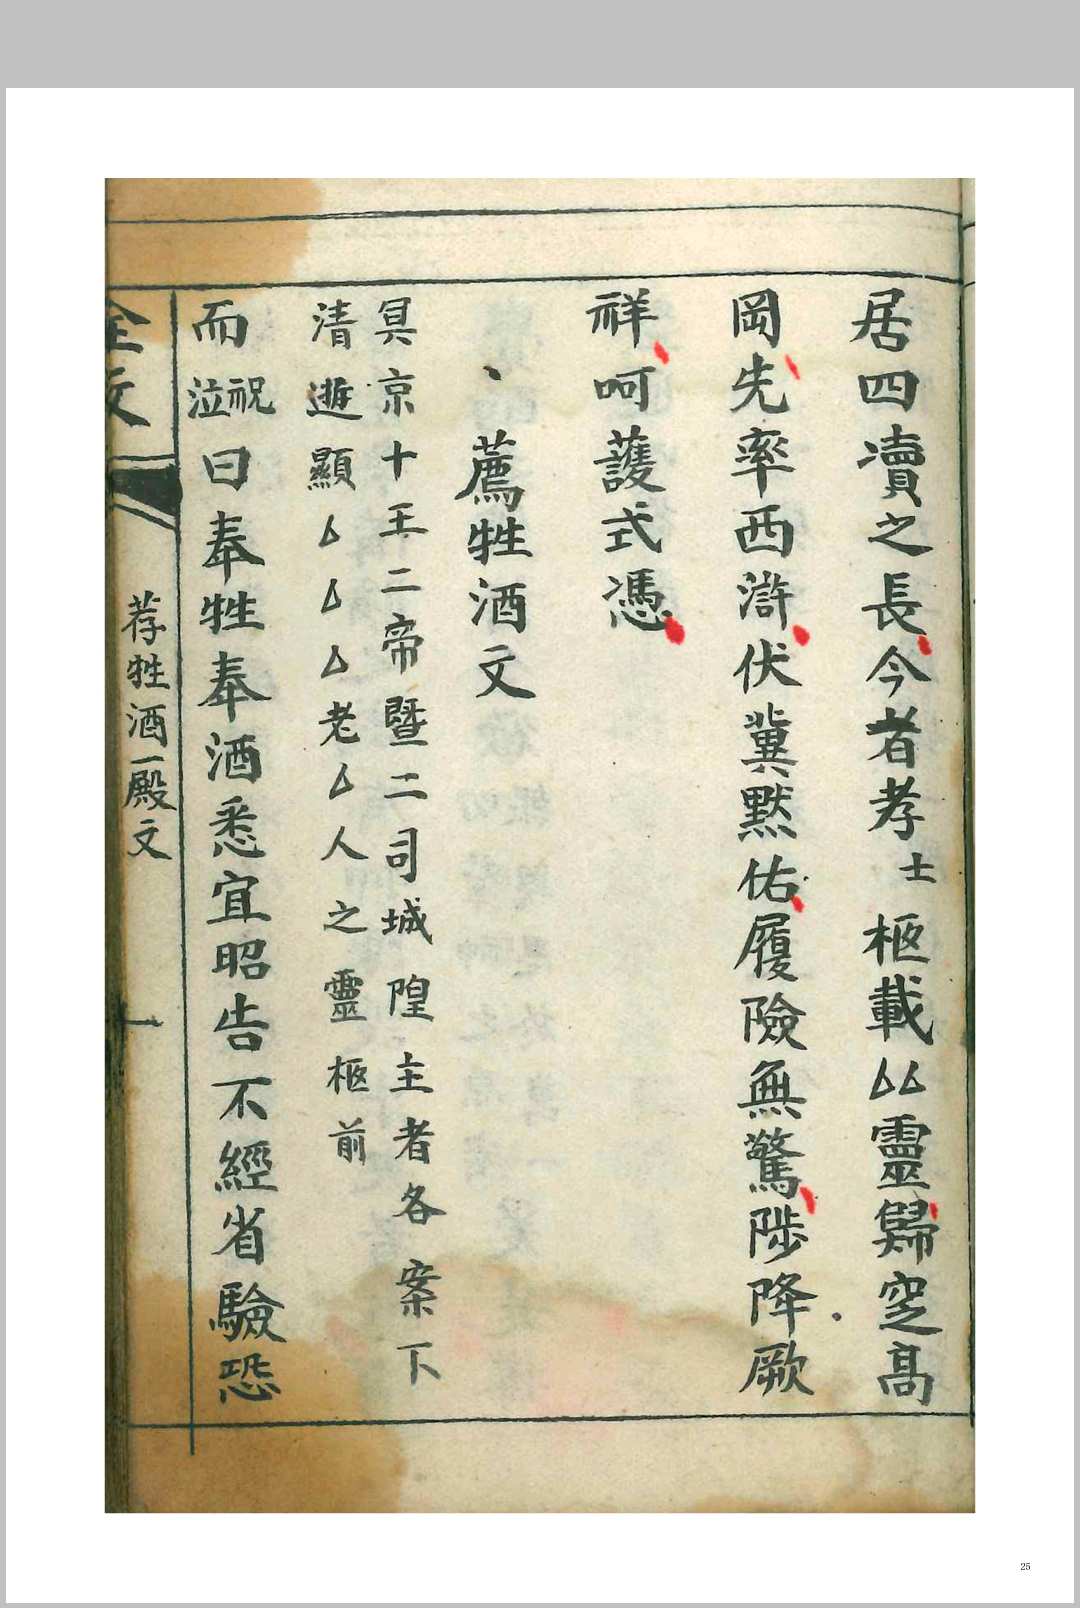 居四瀆之長今者孝士柩載厶厶靈歸窆高
岡先率西滸伏冀默佑履險無驚陟降厥
祥呵護式憑
薦牲酒文
冥京十王二帝暨二司城隍主者各案下
清逝顯厶厶厶老厶人之靈柩前
而祝泣曰奉牲奉酒悉宜昭告不經省驗恐
全文
荐牲酒一殿文
一
25